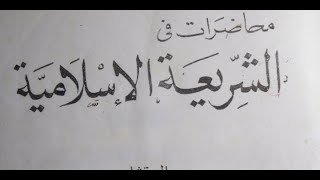 محاضرات في
الشريعة الإسلامية